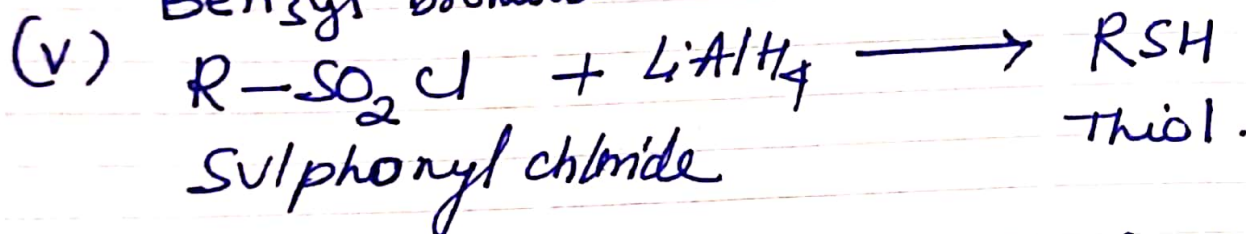 (v) R-SO₂Cl + LiAlH₄ ⟶ RSH
Sulphonyl chloride Thiol.